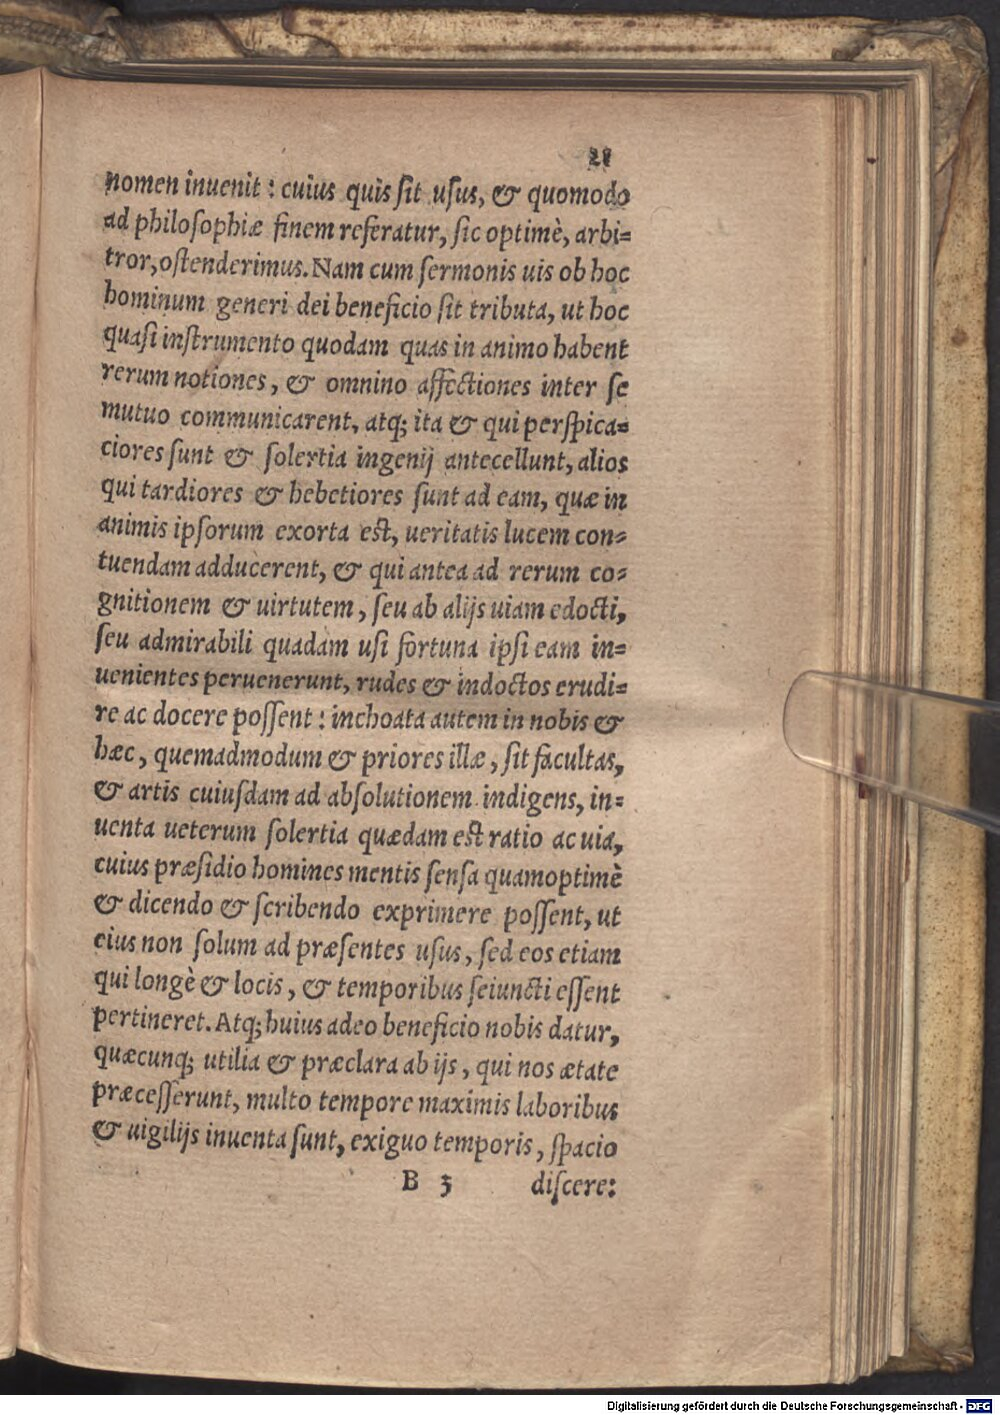 21
nomen inuenit: cuius quis sit usus, & quomodo
ad philosophiæ finem referatur, sic optimè, arbi=
tror, ostenderimus. Nam cum sermonis uis ob hoc
hominum generi dei beneficio sit tributa, ut hoc
quasi instrumento quodam quas in animo habent
rerum notiones, & omnino affectiones inter se
mutuo communicarent, atq; ita & qui perspica=
ciores sunt & solertia ingenij antecellunt, alios
qui tardiores & hebetiores sunt ad eam, quæ in
animis ipsorum exorta est, ueritatis lucem con=
tuendam adducerent, & qui antea ad rerum co=
gnitionem & uirtutem, seu ab alijs uiam edocti,
seu admirabili quadam usi fortuna ipsi eam in=
uenientes peruenerunt, rudes & indoctos erudi=
re ac docere possent: inchoata autem in nobis &
hæc, quemadmodum & priores illæ, sit facultas,
& artis cuiusdam ad absolutionem indigens, in=
uenta ueterum solertia quædam est ratio ac uia,
cuius præsidio homines mentis sensa quamoptimè
& dicendo & scribendo exprimere possent, ut
eius non solum ad præsentes usus, sed eos etiam
qui longè & locis, & temporibus seiuncti essent
pertineret. Atq; huius adeo beneficio nobis datur,
quæcunq; utilia & præclara ab ijs, qui nos ætate
præcesserunt, multo tempore maximis laboribus
& uigilijs inuenta sunt, exiguo temporis, spacio
B 3 discere:
Digitalisierung gefördert durch die Deutsche Forschungsgemeinschaft - DFG